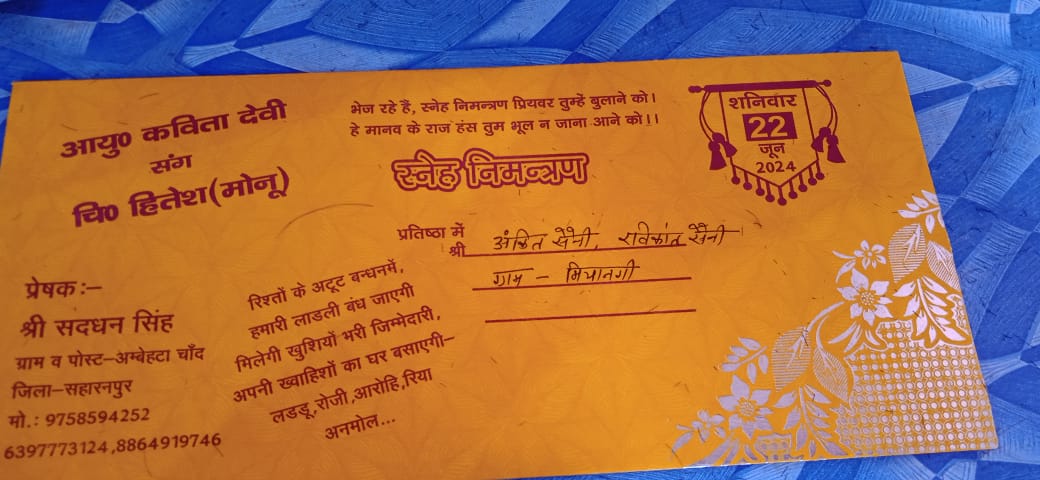 आयु० कविता देवी
संग
चि० हितेश(मोनू)
भेज रहे हैं, स्नेह निमन्त्रण प्रियवर तुम्हें बुलाने को।
हे मानव के राज हंस तुम भूल न जाना आने को।।
स्नेह निमन्त्रण
शनिवार
22
जून
2024
प्रतिष्ठा में
श्री अंकित सैनी, रविकांत सैनी
ग्राम - मियानगी
प्रेषक:–
श्री सदधन सिंह
ग्राम व पोस्ट–अम्बेहटा चाँद
जिला–सहारनपुर
मो.: 9758594252
6397773124,8864919746
रिश्तों के अटूट बन्धनमें,
हमारी लाडली बंध जाएगी
मिलेगी खुशियों भरी जिम्मेदारी,
अपनी ख्वाहिशों का घर बसाएगी–
लडडू,रोजी,आरोहि,रिया
अनमोल...